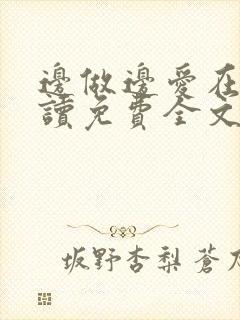 邊做邊愛在
讀免費全文
坂野杏梨蒼